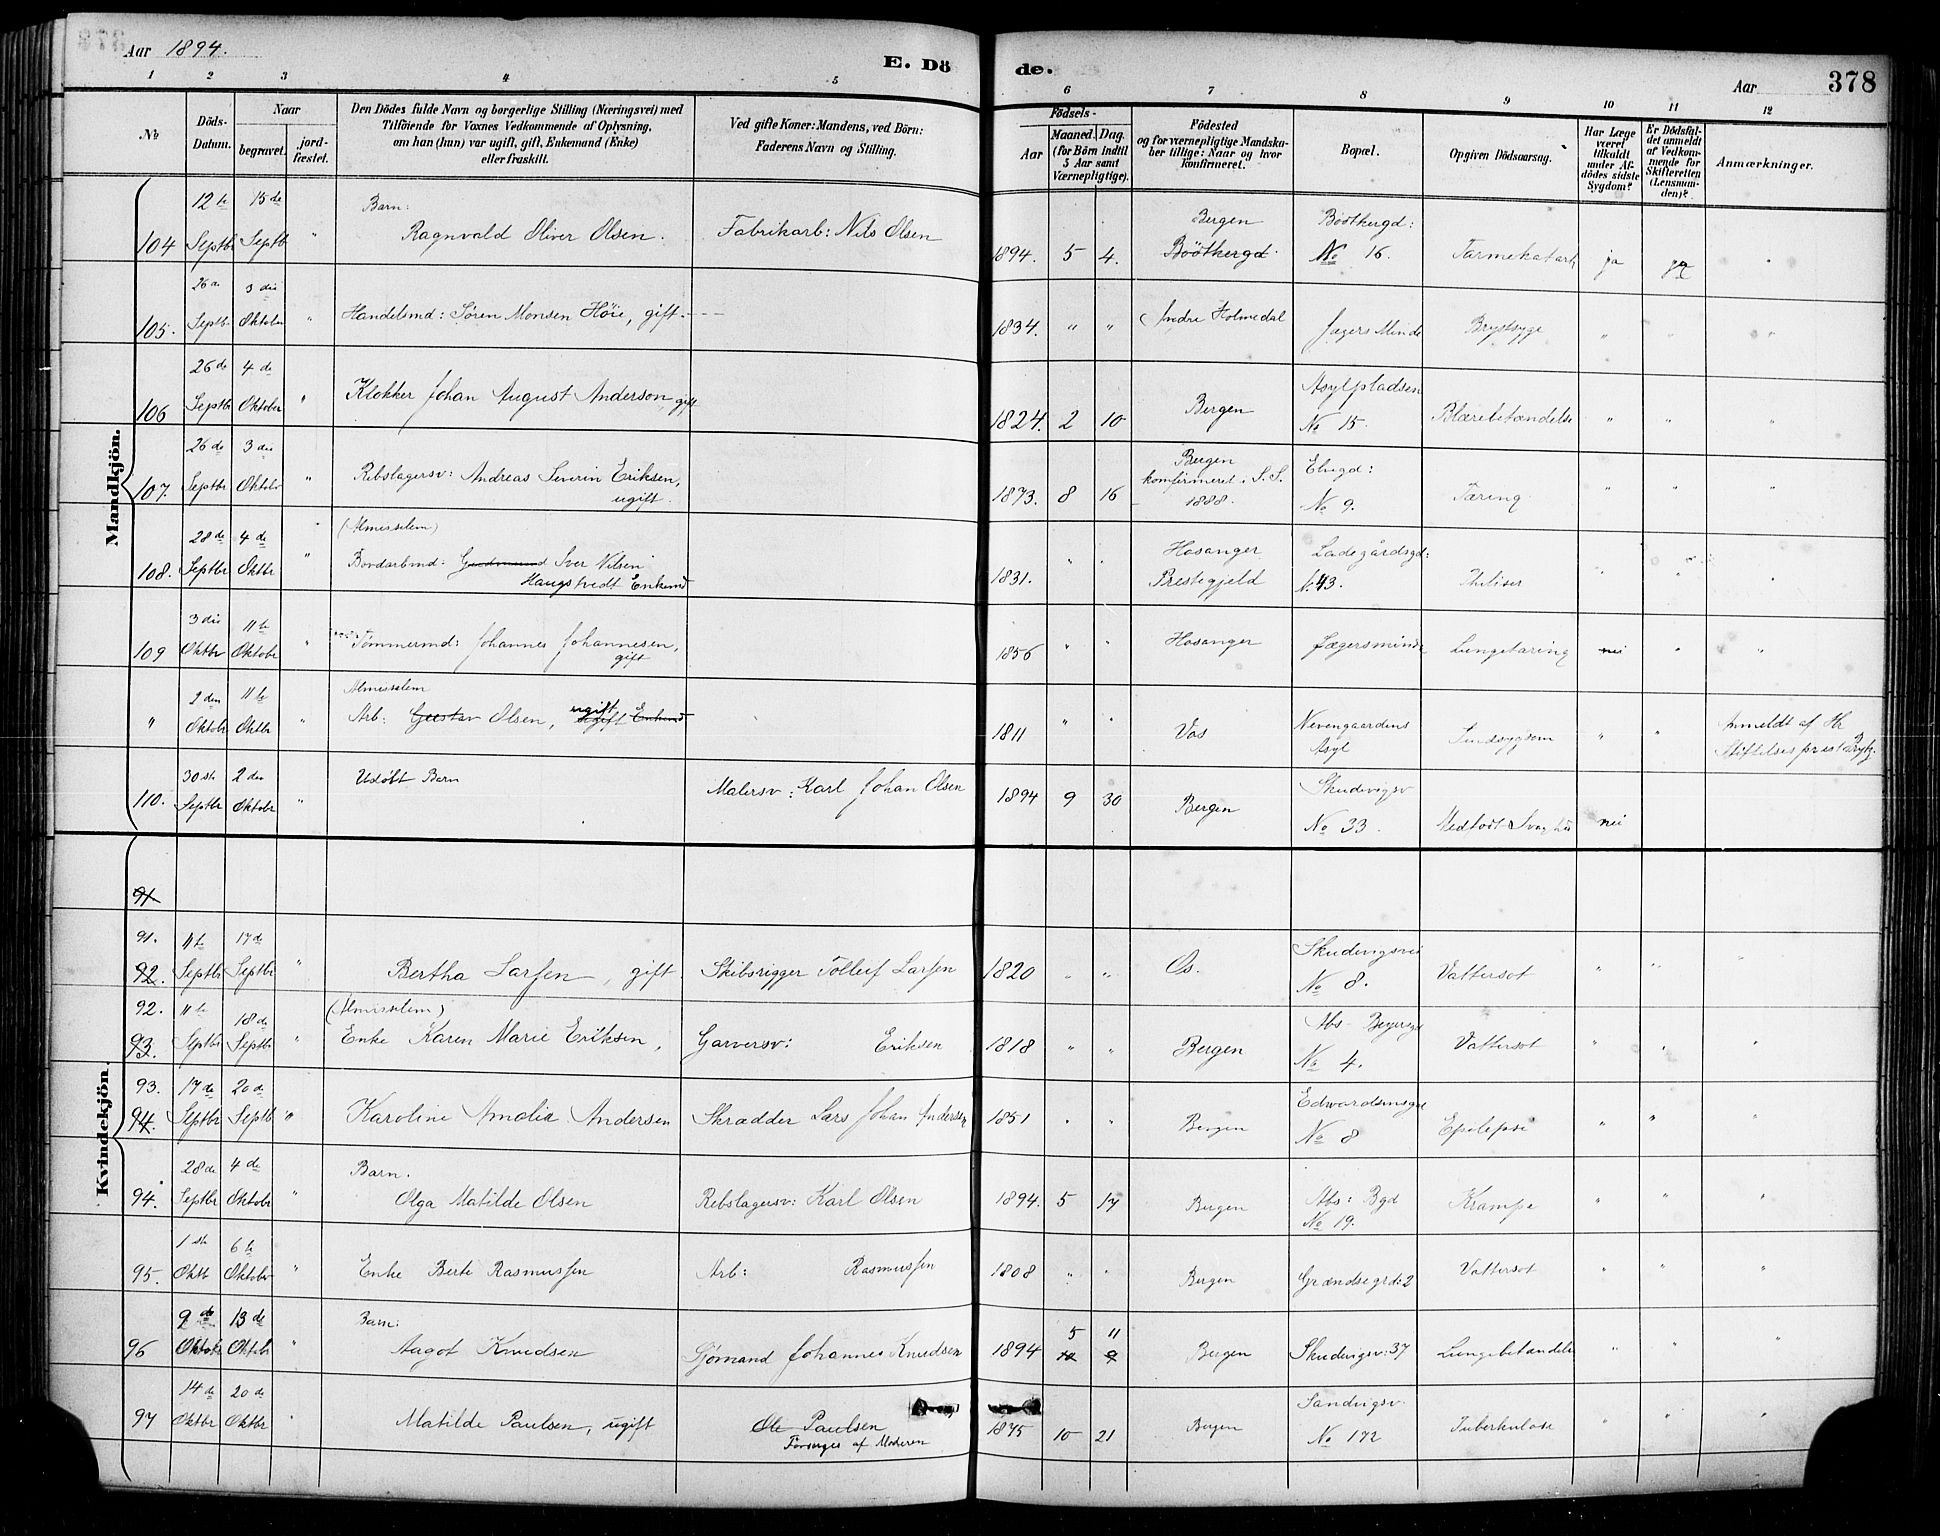 Aar 1894.
E. Dö
de.
Aar
378
1 2 3 4 5
6 7 8 9 10 11 12
No
Döds-Datum.
Naar
begravet.
jord-fæstet.
Den Dödes fulde Navn og borgerlige Stilling (Næringsvei) med
Tilföiende for Voxnes Vedkommende af Oplysning,
om han (hun) var ugift, gift, Enkemand (Enke)
eller fraskilt.
Ved gifte Koner: Mandens, ved Börn:
Faderens Navn og Stilling.
Födsels-
Aar
Maaned.
Dag.
(for Börn indtil
5 Aar samt
Værnepligtige).
Födested
og for værnepligtige Mandska-
ber tillige: Naar og hvor
konfirmeret.
Bopæl.
Opgiven Dödsaarsag.
Har Læge
været
tilkaldt
under Af-
dödes sidste
Sygdom?
Er Dödsfal-
det anmeldt
af Vedkom-
mende for
Skifteretten
(Lensman-
den)?
Anmærkninger.
Mandkjön.
12te 15de Barn: Bergen Böötkergd:
104 Septbr Septb " Ragnvald Oliver Olsen. Fabrikarb: Nils Olsen 1894. 5 4. Böötkergd. No 16. Tarmekatarh ja ja "
26de 3die
105. Septbr Oktober " Handelsmd: Søren Monsen Höie, gift. 1834. " " Indre Holmedal Jægers Minde Brystsyge " " "
26de 4de Asylpladsen
106 Septbr Oktober " Klokker Johan August Anderson, gift 1824. 2 10 Bergen No 15. Blærebetændelse " " "
26de 3die Bergen Elvegd:
107. Septbr Oktobr " Rebslagersv: Andreas Severin Eriksen, 1873. 8 16 konfirmeret i S. S. Tæring " " "
ugift. 1888. No 9.
28de 4de (Almisselem) Hosanger Ladegårdsgd:
108. Septbr Oktbr " Bordarbmd: Gudmund Iver Nilsen 1831. " " Prestegjeld No 43. "  " "
Haugstvedt Enkemd
3die 11te
109 Oktbr Oktobr " Tømmermd: Johannes Johannesen, 1856 " " Hosanger Jægersminde Lungetæring nei " "
gift
2den 11te Almisselem ugift
" Oktobr Oktbr " Arb: Gustav Olsen, ugift Enkemd 1811 " " Vos Nevengaardens Asyl Sindsygdom " " Anmeldt af Hr Stiftelsesprest
30te 2den Udöbt Barn Skudevigsv
110. Septbr Oktober " Malersv: Karl Johan Olsen 1894 9 30 Bergen No 33. Medfödt Svaghed nei
Kvindekjön.
91
91. 11te 17de Skudevigsvei
92. Septbr Septbr " Bertha Larsen, gift Skibsrigger Tollef Larsen 1820 " " Os. No 8. Vattersot " " "
92. 11te 18de (Almisselem)
93. Septbr Septbr " Enke Karen Marie Eriksen, Garversv: Eriksen 1818 " " Bergen No 4. Vattersot " " "
93. 17de 20de Edvardsensgd
94. Septbr Septb " Karoline Amalia Andersen Skrædder Lars Johan Andersen 1851 " " Bergen No 8 Epelepsi " "
28de 4de Barn.
94. Septbr Oktobr " Olga Matilde Olsen Rebslagersv: Karl Olsen 1894. 5 17 Bergen No 19. Krampe " " "
1ste 6te
95. Oktb Oktobr " Enke Berte Rasmussen Arb: Rasmussen 1808 " " Bergen Grændsegrd: 2 Vattersot " " "
9de 13de Barn: 5 11
96 Oktobr Oktbr " Aagot Knudsen Sjømand Johannes Knudsen 1894 10 9 Bergen Skudevigsv: 37 Lungebetændelse " " "
14de 20de Sandvigsv.
97 Oktbr Oktbr " Matilde Paulsen, ugift Ole Paulsen 1875 10 21 Bergen No 172 Tuberkulose " " "
Forsørges af Moderen